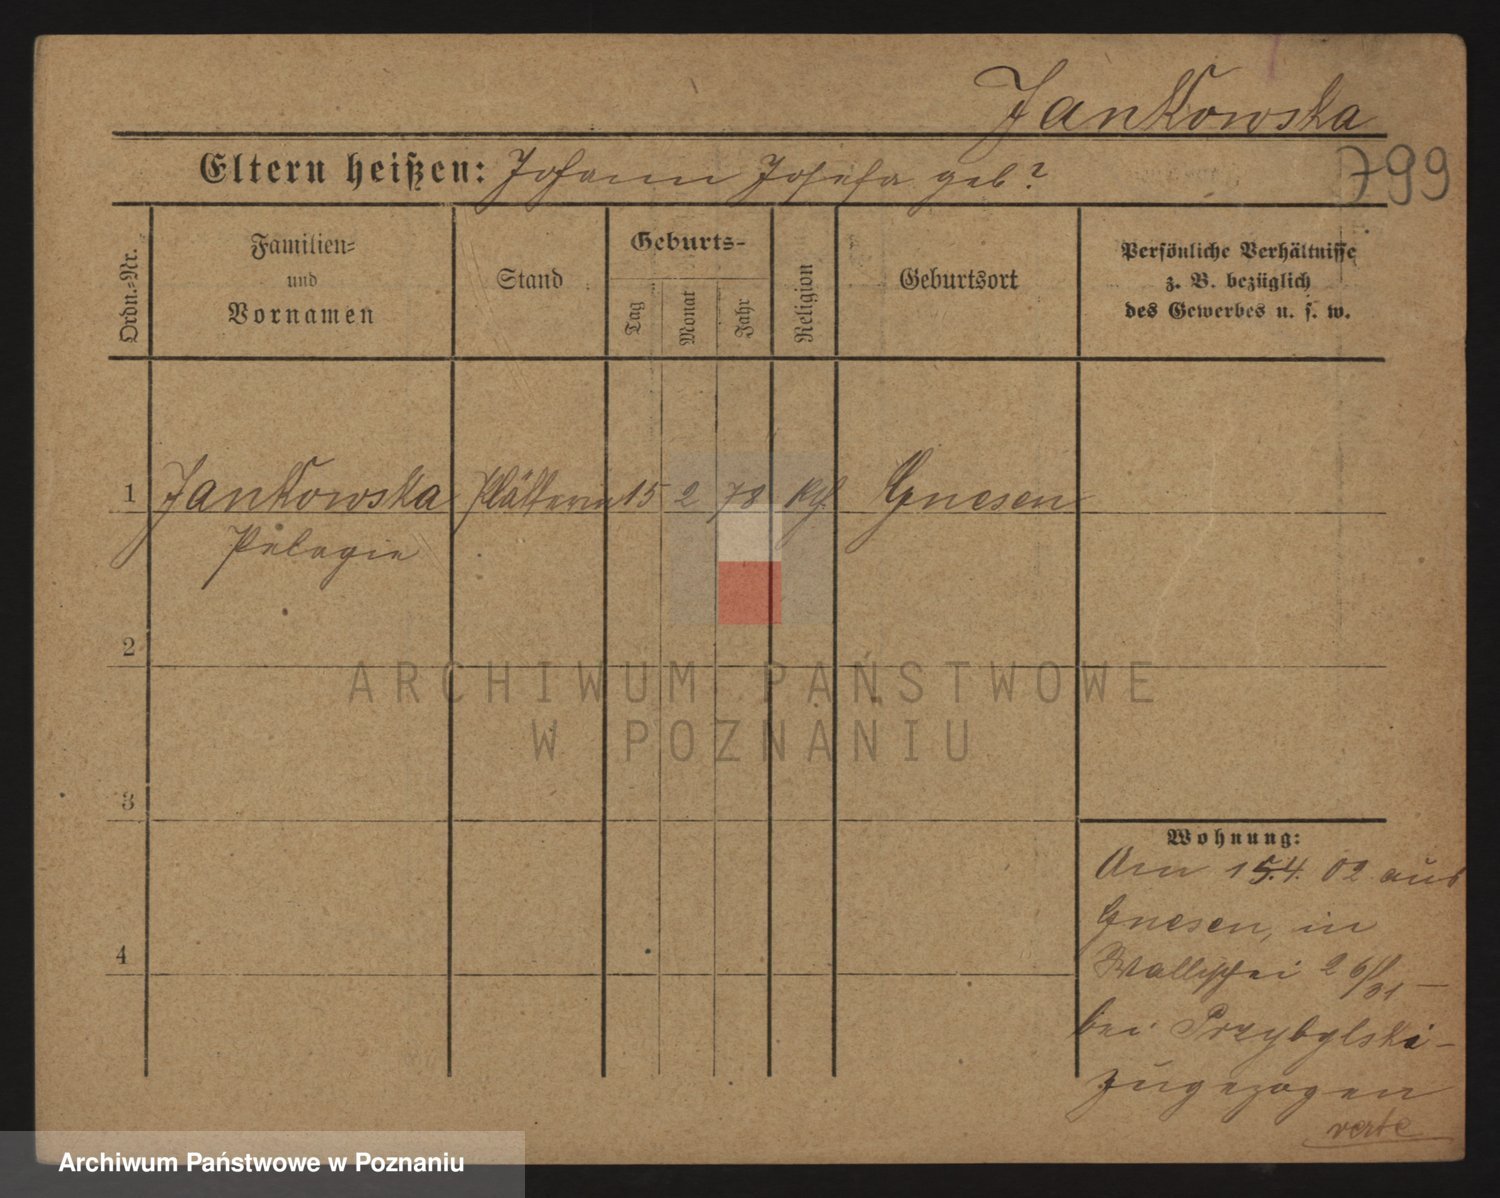 Jankowska
Eltern heißen: Johann Josefa geb?
799
Ordn.-Nr.
Familien-
und
Vornamen
Stand
Geburts-
Tag
Monat
Jahr
Religion
Geburtsort
Persönliche Verhältnisse
z. B. bezüglich
des Gewerbes u. s. w.
1 Jankowska Plätterin 15 2 78 kth. Gnesen
Pelagie
2
3
4
Wohnung:
Am 15.4.02 aus
Gnesen, in
Wallischei 26/31
bei Przybylski
zugezogen
verte
ARCHIWUM PAŃSTWOWE
W POZNANIU
Archiwum Państwowe w Poznaniu